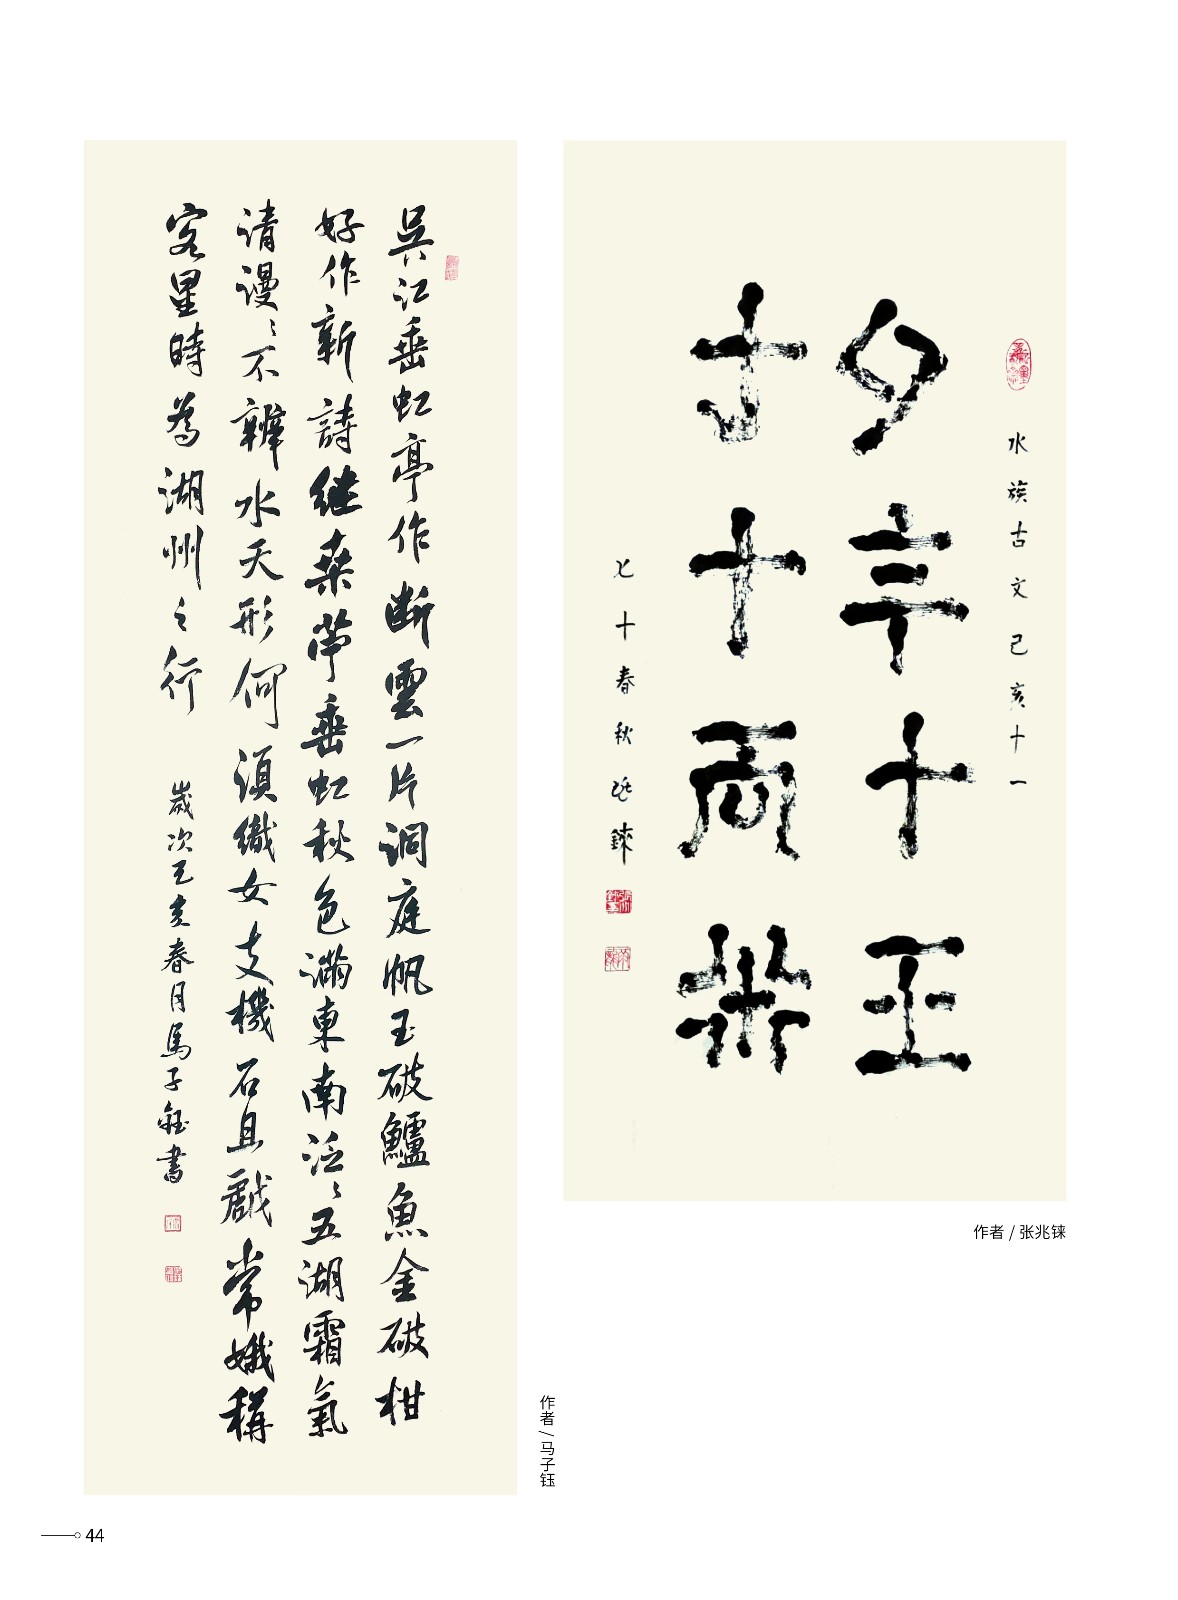 吳江垂虹亭作断雲一片洞庭帆玉破鱸魚金破柑
好作新詩继桑苧垂虹秋色滿東南泛〻五湖霜氣
清漫〻不辨水天形何須織女支機石且戲常娥稱
客星時為湖州之行
歲次己亥春月馬子鈺書
作者 / 马子钰
水族古文己亥十一
七十春秋兆錸
作者 / 张兆铼
44